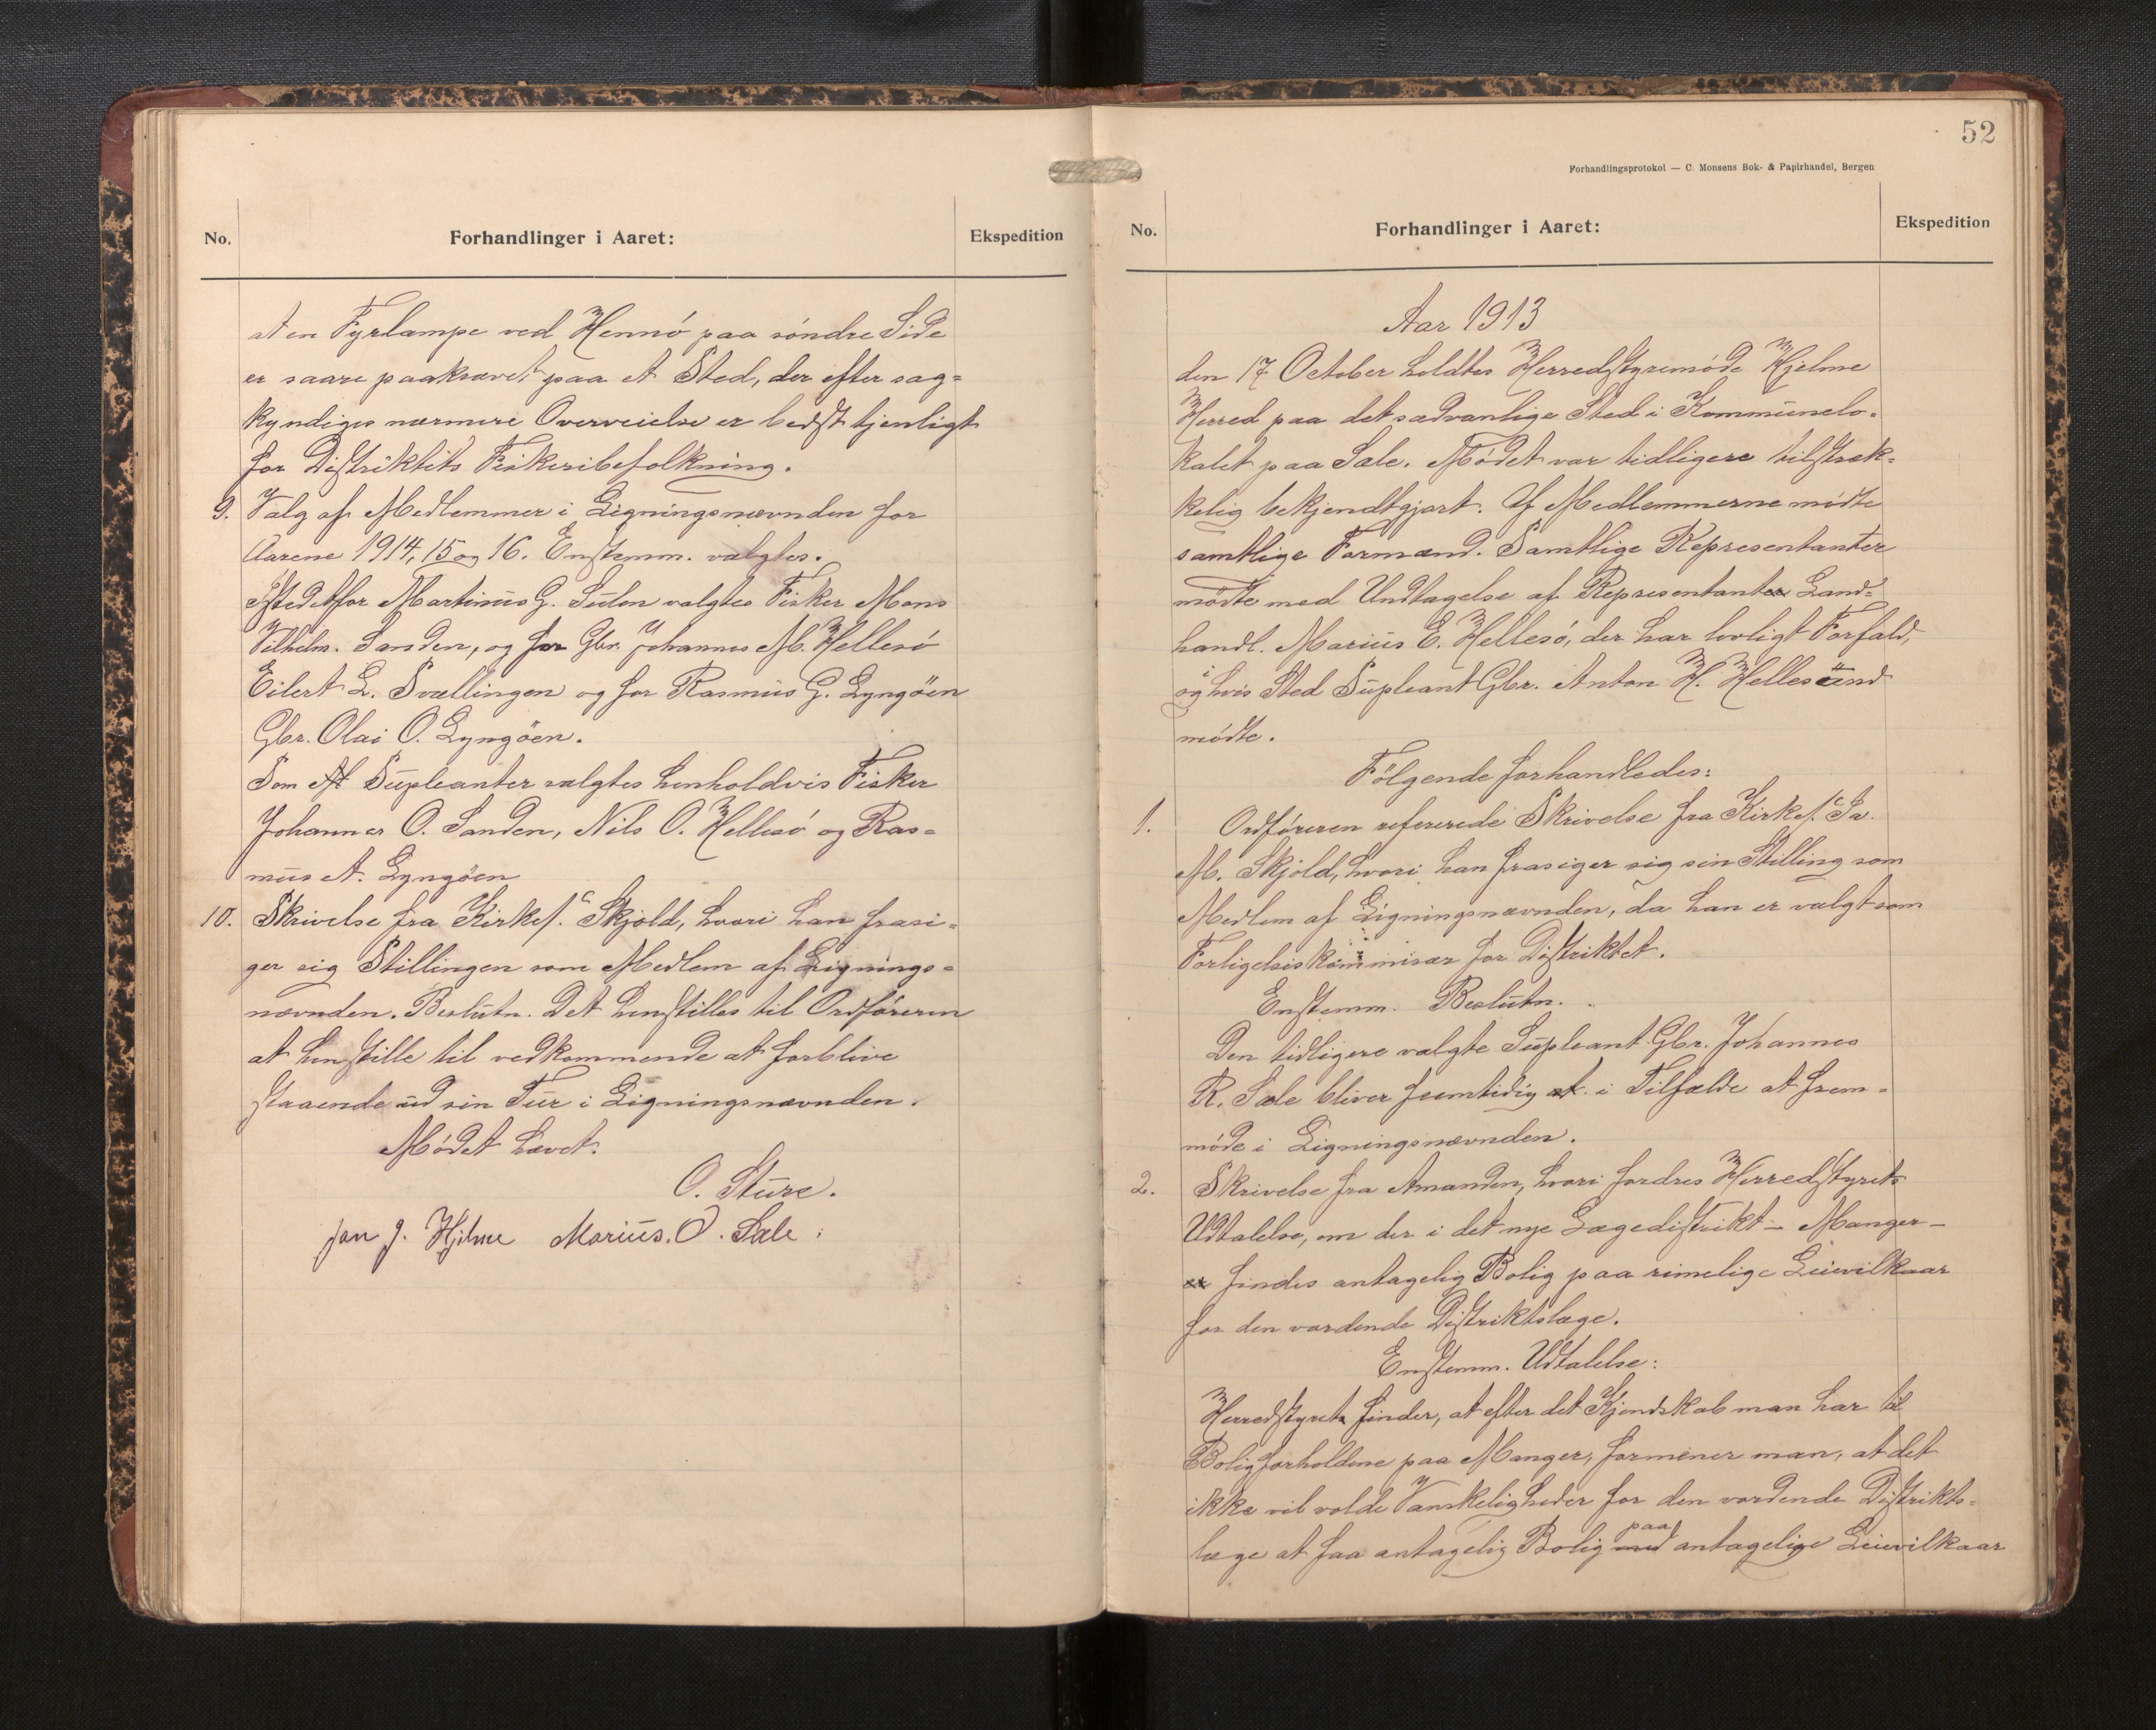 No.
Forhandlinger i Aaret:
Ekspedition
at en Fyrlampe ved Hennö paa söndre Side
er saare paakrævet paa et Sted, der efter sag=
kyndiges nærmere Overveielse er bedst tjenligt
for Distriktets Fiskeribefolkning.
9. Valg af Medlemmer i Ligningsnævnden for
Aarene 1914, 15 og 16. Enstemm. valgtes.
Istedetfor Martinus G. Sulen valgtes Fisker Mons
Vilhelm. Sanden, og for Gbr. Johannes M. Hellesö
Eilert L. Svællingen og for Rasmus G. Lyngöen
Gbr. Olai O. Lyngöen.
Som Supleanter valgtes henholdvis Fisker
Johannes O. Sanden, Nils O. Hellesö og Ras=
mus A. Lyngöen
10. Skrivelse fra Kirkes. Skjold, hvori han frasi=
ger sig Stillingen som Medlem af Lignings=
nævnden. Beslutn. Det henstilles til Ordföreren
at henstille til vedkommende at forblive
staaende ud sin Tur i Ligningsnævnden.
Mödet hævet.
O. Sture.
Jan J. Hjelme Marius. O. Sæle.
52
Forhandlingsprotokol — C. Monsens Bok- & Papirhandel, Bergen
No.
Forhandlinger i Aaret:
Ekspedition
Aar 1913
den 17 October holdtes Herredstyremöde Hjelme
Herred paa det sædvanlige Sted i Kommunelo=
kalet paa Sæle. Mödet var tidligere tilstræk=
kelig bekjendtgjort. Af Medlemmerne mödte
samtlige Formænd. Samtlige Representanter
mödte med Undtagelse af Representanten Land=
handl. Marius E. Hellesö, der har lovligt Forfald,
og i hvis Sted Supleant Gbr. Anton H. Hellesund
mödte.
Fölgende forhandledes:
1. Ordföreren refererede Skrivelse fra Kirkes. Ja.
M. Skjold, hvori han frasiger sig sin Stilling som
Medlem af Ligningsnævnden, da han er valgt som
Forligelsiskommisær for Distriktet.
Enstemm. Beslutn.
Den tidligere valgte Supleant Gbr. Johannes
R. Sæle bliver fremtidig i Tilfælde at frem=
möde i Ligningsnævnden.
2. Skrivelse fra Amanden, hvori fordres Herredstyrets
Udtalelse, om der i det nye Lægedistrikt – Manger –
findes antagelig Bolig paa rimelige Leievilkaar
for den vordende Distriktslæge.
Enstemm. Udtalelse:
Herredstyret finder, at efter det Kjendskab man har til
Boligforholdene paa Manger, formener man, at det
ikke vil volde Vanskeligheder for den vordende Distrikts=
læge at faa antagelig Bolig paa antagelige Leievilkaar